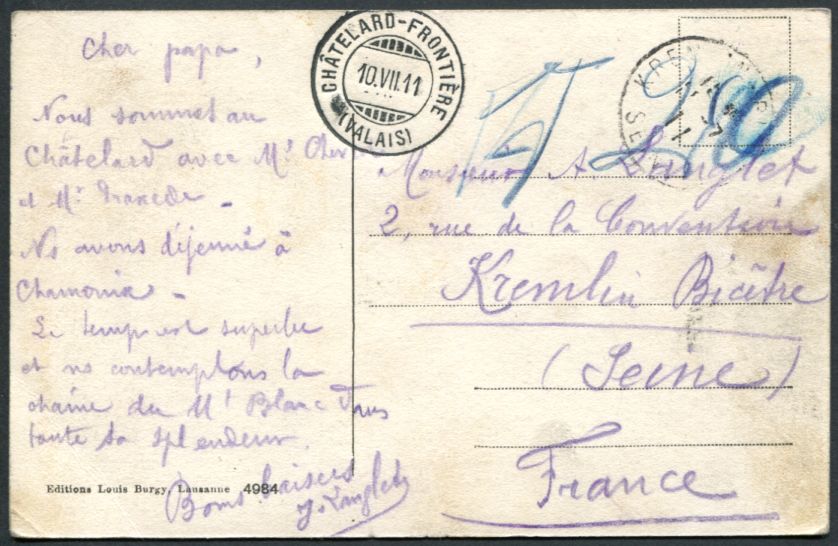 Cher papa,
Nous sommes au
Châtelard avec Mr
et Mr
Ns avons déjeuné à
Chamonix
Le temps est superbe
et ns contemplons la
chaîne du Mt Blanc dans
toute sa splendeur.
Bons baisers
J. Langlet
Editions Louis Burgy, Lausanne 4984
CHÂTELARD-FRONTIÈRE
10.VII.11
(VALAIS)
T 20
KREMLIN
Monsieur A. Langlet
2, rue de la Convention
Kremlin Bicêtre
(Seine)
France